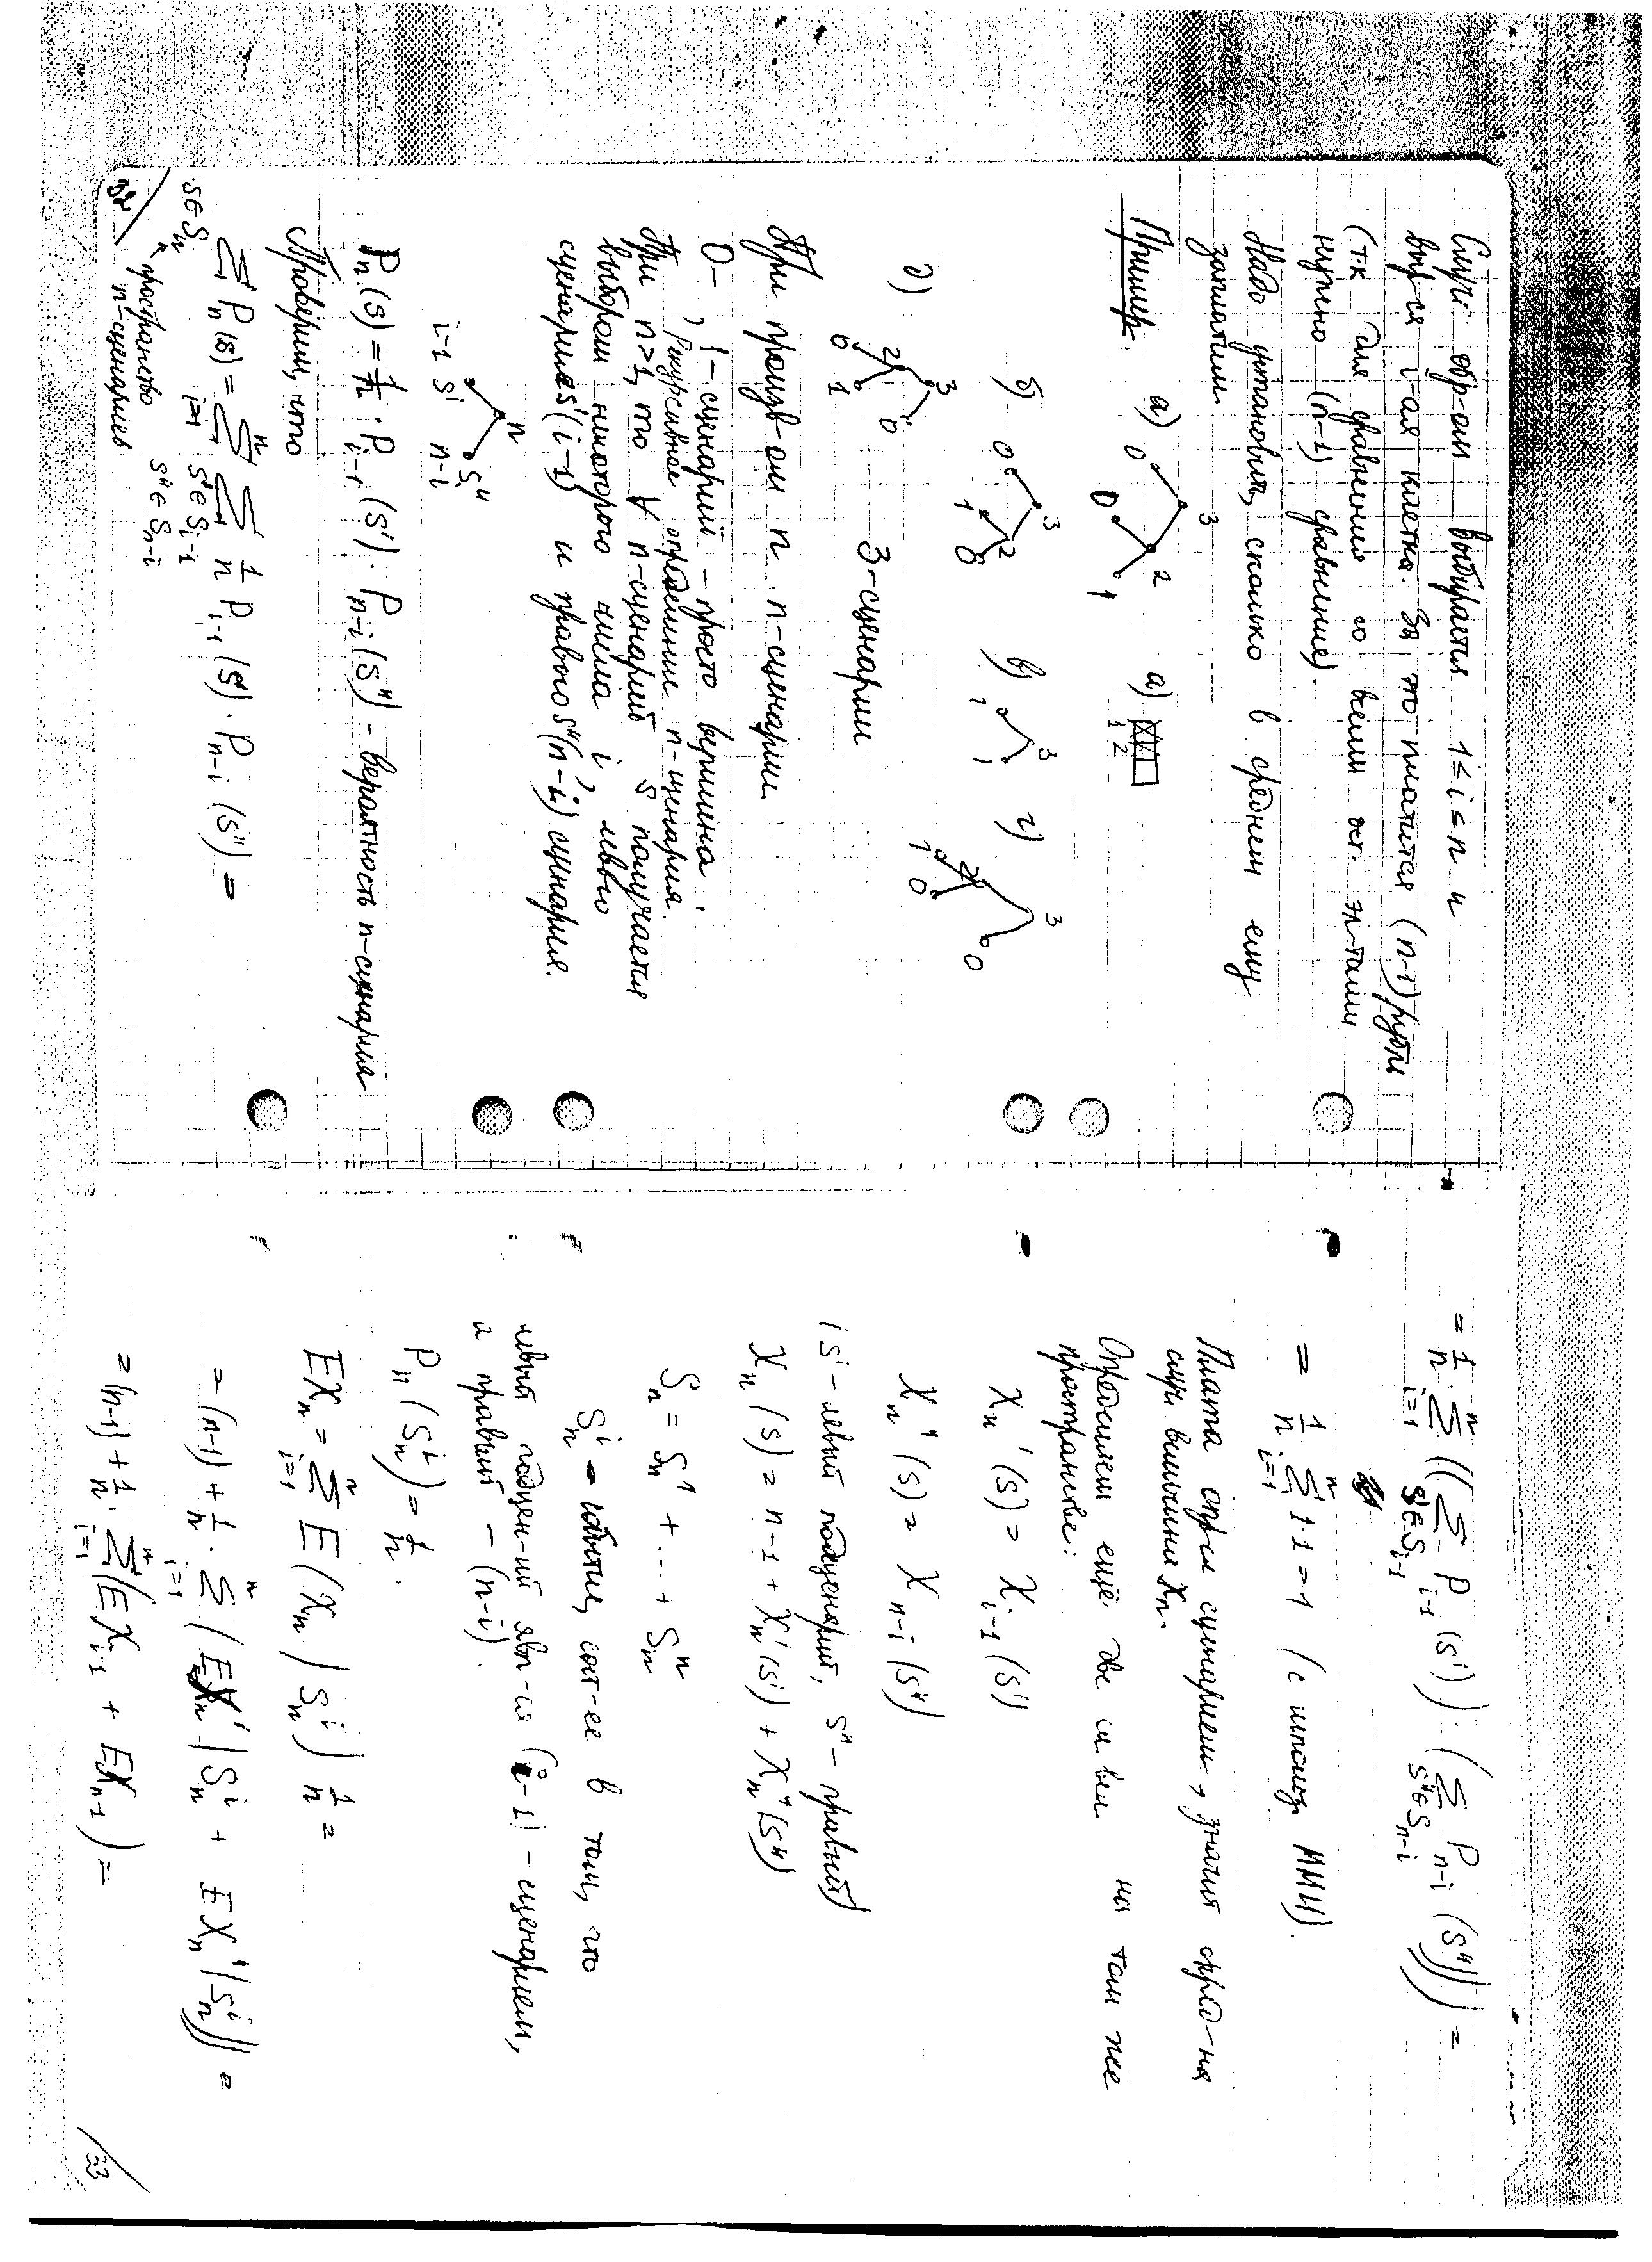 Случ. обр-ом выбирается 1 ≤ i ≤ n и
выр-ся i-ая клетка. За это платится (n-1) рубль
(т.к для сравнения со всеми ост. эл-тами
нужно (n-1) сравнение).
Надо установить, сколько в среднем ему
заплатим.
Пример. а) 0 3 0 2 1 а) 1 2
б) 0 3 1 2 0 в) 1 3 1 г) 3 2 1 0 0
д) 3 2 0 1 0 3-сценарии
При произв-ом n n-сценарии.
0-, 1-сценарий - просто вершина.
Рекурсивное определение n-сценария.
При n>1, то ∀ n-сценарий S получается
выбором некоторого числа i, левого
сценария S'(i-1) и правого S"(n-i) сценария.
n
i-1 S' n-i S"
Pn(S) = 1/n · Pi-1(S') · Pn-i(S") - вероятность n-сценария
Проверим, что
∑ S∈Sn Pn(S) = ∑ i=1 n ∑ S'∈Si-1 S"∈Sn-i 1/n Pi-1(S') · Pn-i(S") =
пространство
n-сценариев
32
= 1/n · ∑ i=1 n ((∑ S'∈Si-1 Pi-1(S')) · (∑ S"∈Sn-i Pn-i(S"))) =
= 1/n ∑ i=1 n 1·1 = 1 (с использ ММИ).
Плата опр-ся сценарием, значит опред-на
случ величина Xn.
Определим ещё две сл вел на том же
пространстве:
Xn'(S) = Xi-1(S')
Xn"(S) = Xn-i(S")
(S' - левый подсценарий, S" - правый)
Xn(S) = n-1 + Xn'(S') + Xn"(S")
Sn = Sn^1 + ... + Sn^n
Sn^i - событие, сост-ее в том, что
левый подсцен-ий явл-ся (i-1)-сценарием,
а правый - (n-i).
Pn(Sn^i) = 1/n.
EXn = ∑ i=1 n E(Xn | Sn^i) 1/n =
= (n-1) + 1/n · ∑ i=1 n (EXn' | Sn^i + EXn" | Sn^i)) =
= (n-1) + 1/n · ∑ i=1 n (EXi-1 + EXn-1) =
33